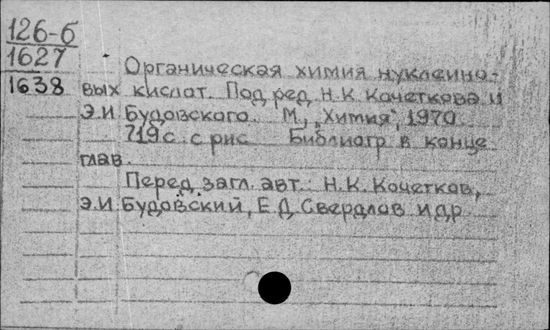 126-б
1627
1638
Органическая химия нуклеино-
вых кислот. Под ред. Н.К. Кочеткова и
Э.И. Будовского. М., „Химия“, 1970.
719с. с рис. Библиогр. в конце
глав.
Перед загл. авт.: Н.К. Кочетков,
Э.И. Будовский, Е.Д. Свердлов и др.